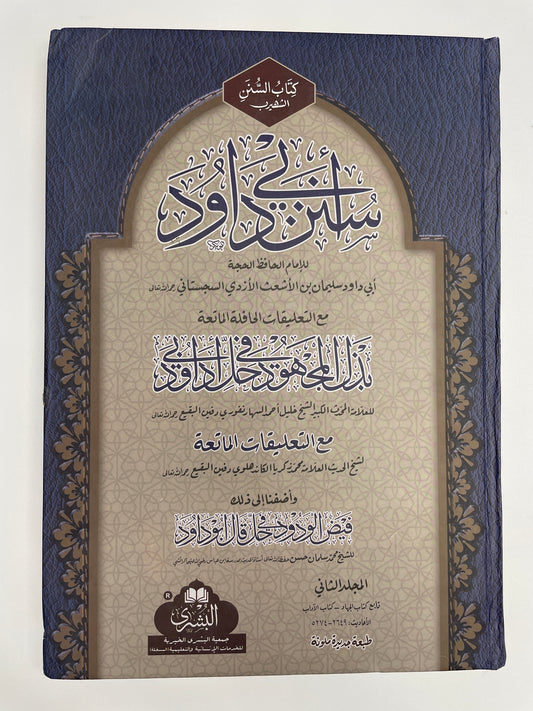 كِتَابُ السُّنَنِ
الشهير بـ
سُنَن أبي دَاوُدَ
للإمام الحافظ الحجة
أبي داود سليمان بن الأشعث الأزدي السجستاني رحمه الله تعالى
مع التعليقات الحافلة الماتعة
بَذْل المَجْهُود في حَلّ أبي دَاوُد
للعلامة المحدث الكبير الشيخ خليل أحمد السهارنفوري دفين البقيع رحمه الله تعالى
مع التعليقات الماتعة
لشيخ الحديث العلامة محمد زكريا الكاندهلوي دفين البقيع رحمه الله تعالى
وأضفنا إلى ذلك
فَيْضُ الوَدُود في حَلّ قَالَ أبُو دَاوُد
للشيخ محمد سلمان حسن
المجلد الثاني
تابع كتاب الجهاد - كتاب الآداب
الأحاديث: ٢٦٤٩-٥٢٧٤
طبعة جديدة ملونة
®
البُشْرى
جمعية البشرى الخيرية
للخدمات الإنسانية والتعليمية (المسجلة)